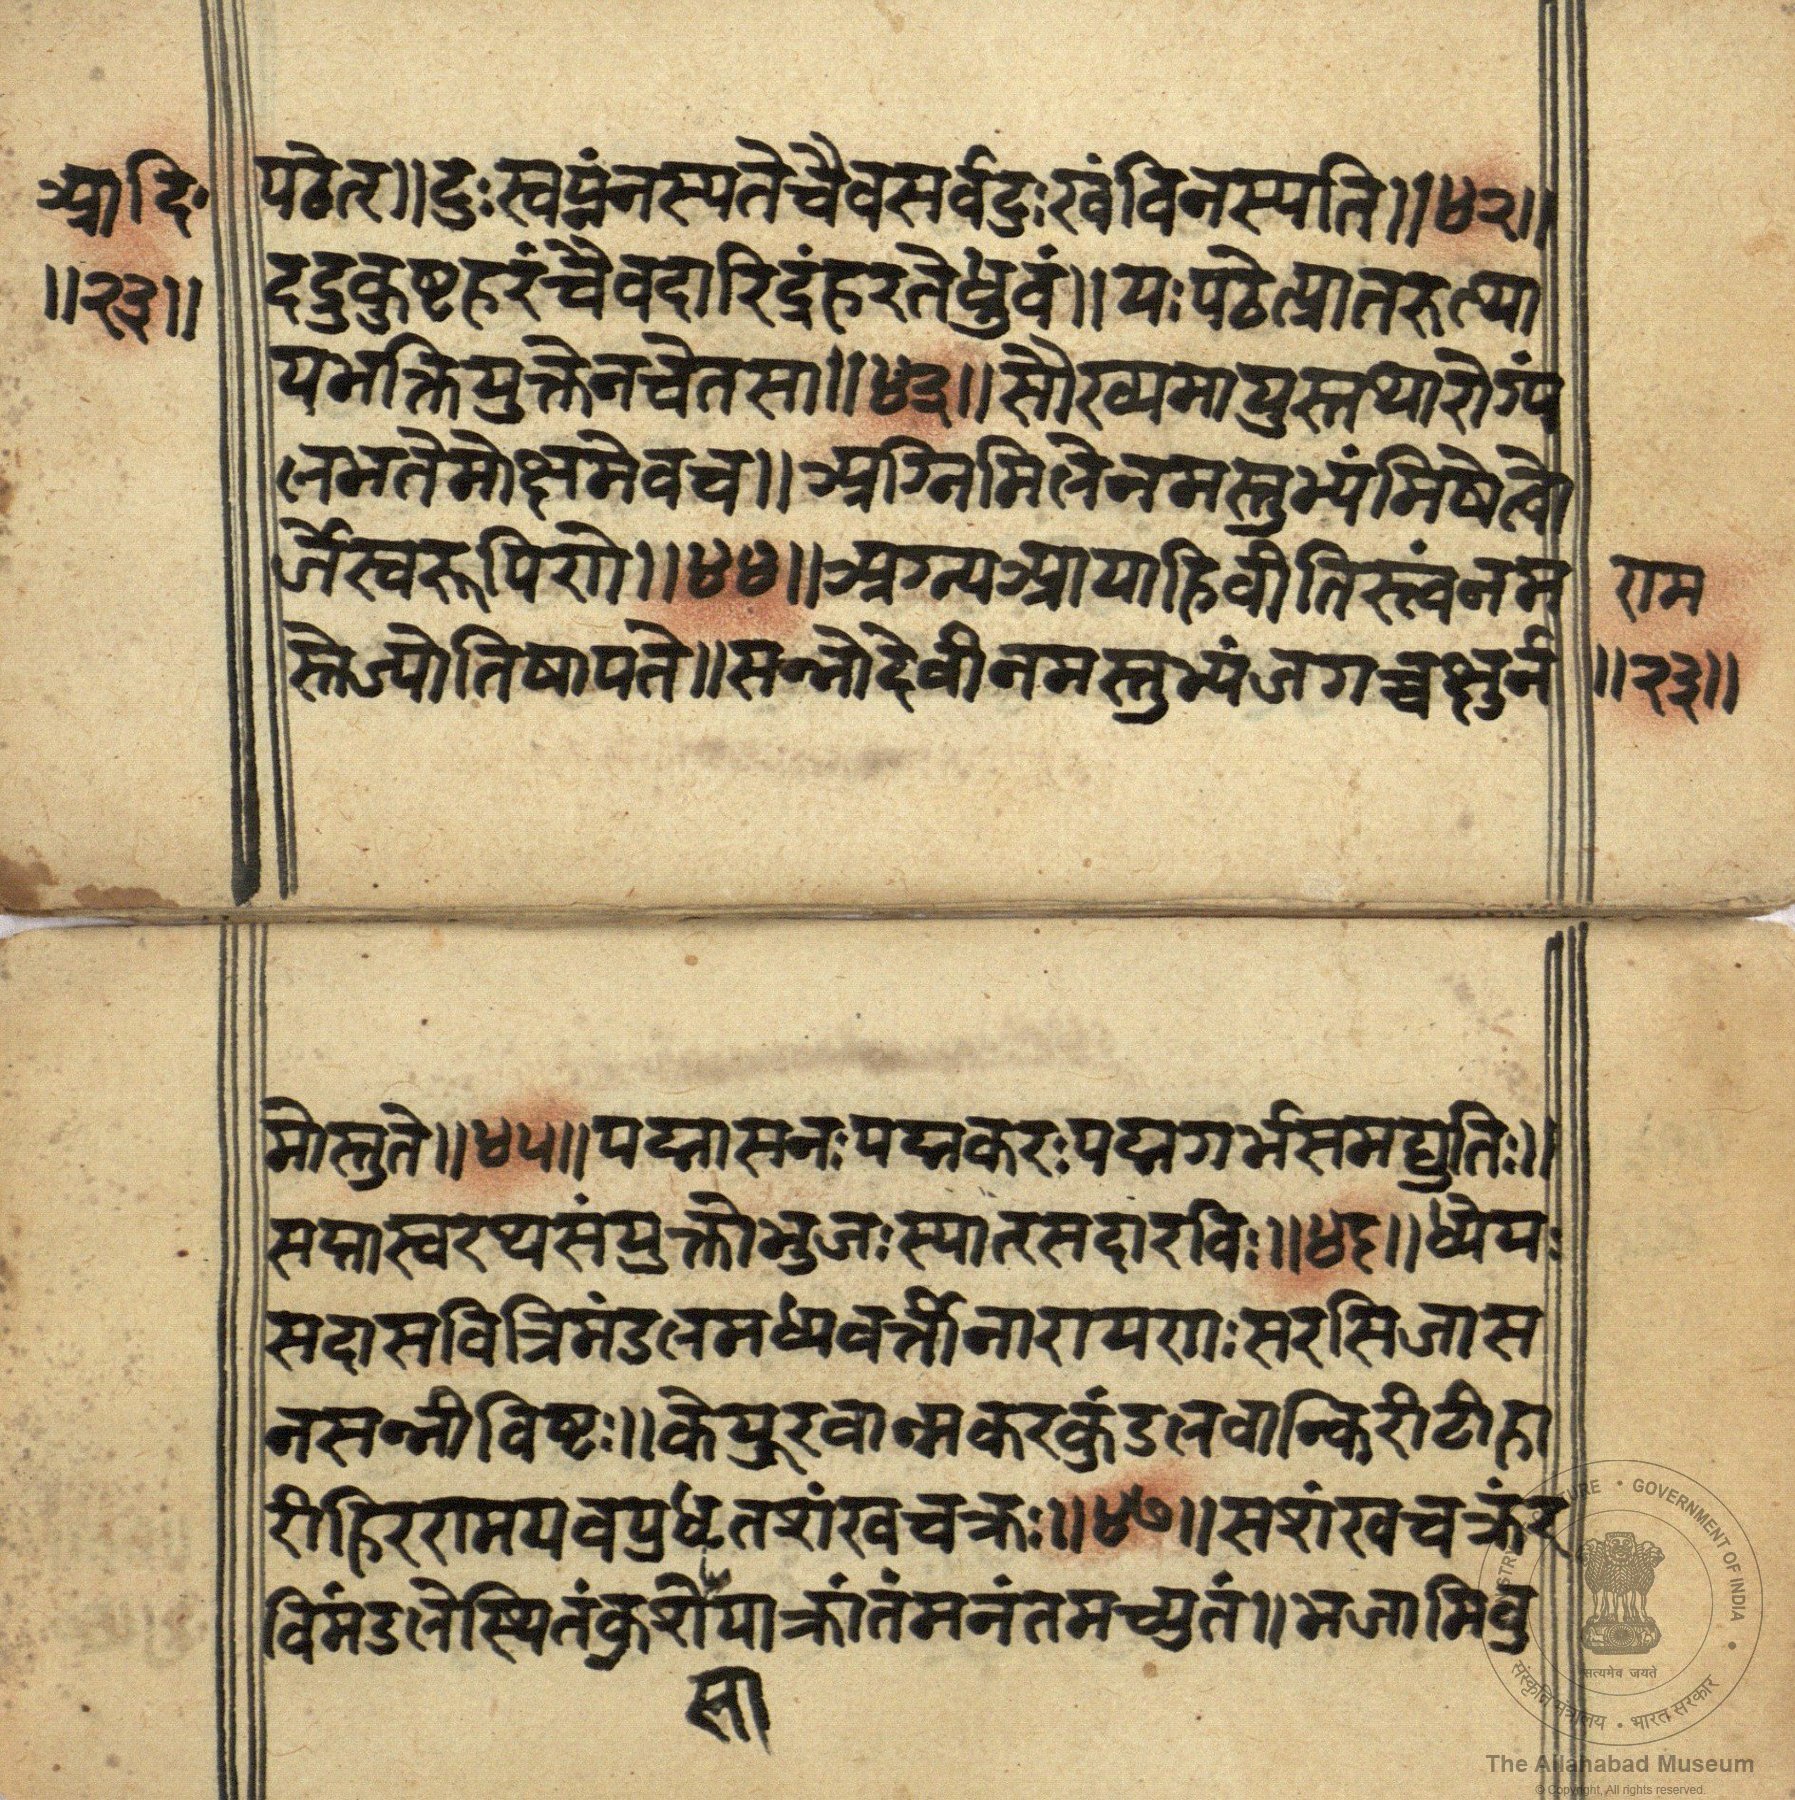 आदि॰
॥२३॥
पठेत्॥दुःस्वप्नंनस्यतेचैवसर्वदुःखंविनस्यति॥४२॥
दद्रुकुष्टहरंचैवदारिद्रंहरतेध्रुवं॥यःपठेत्प्रातरुत्था
यभक्तियुक्तेनचेतसा॥४३॥सौख्यमायुस्तथारोग्यं
लभतेमोक्षमेवच॥अग्निमिलेनमस्तुभ्यंमिषेत्वो
र्जेस्वरूपिणे॥४४॥अग्न्यआयाहिवीतिस्त्वंनम
स्तेज्योतिषापते॥सन्नोदेवीनमस्तुभ्यंजगच्चक्षुर्न
राम
॥२३॥
मोस्तुते॥४५॥पद्मासनःपद्मकरःपद्मगर्भसमद्युतिः॥
सप्तास्वरथसंयुक्तोभुजःस्यात्सदारविः॥४६॥ध्येयः
सदासवित्रिमंडलमध्यवर्त्तीनारायणःसरसिजास
नसन्नीविष्टः॥केयुरवान्मकरकुंडलवान्किरीटीहा
रीहिरणमयवपुर्धृतशंखचक्रः॥४७॥सशंखचक्रंर
विमंडलेस्थितंकुशेयाक्रांतंमनंतमच्युतं॥भजामिबु
The Allahabad Museum
© Copyright, All rights reserved.
GOVERNMENT OF INDIA
सत्यमेव जयते
संस्कृति मंत्रालय • भारत सरकार